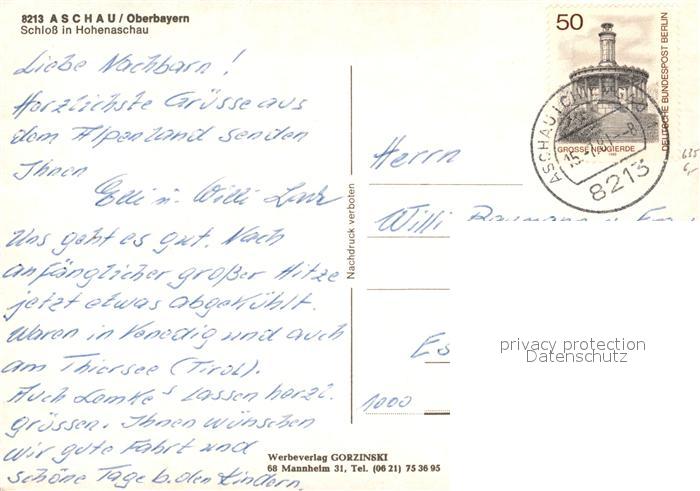 8213 ASCHAU / Oberbayern
Schloß in Hohenaschau
Liebe Nachbarn!
Herzlichste Grüsse aus
dem Alpenland senden
Ihnen
Edi u. Willi
Uns geht es gut. Nach
anfänglicher großer Hitze
jetzt etwas abgekühlt.
Waren in Venedig und auch
am Thiersee (Tirol).
Auch Lemke's lassen herzl.
grüssen. Ihnen wünschen
wir gute Fahrt und
schöne Tage b. den Kindern.
Nachdruck verboten
Werbeverlag GORZINSKI
68 Mannheim 31, Tel. (06 21) 75 36 95
50
DEUTSCHE BUNDESPOST BERLIN
GROSSE NEUGIERDE
ASCHAU i. CHIEMGAU
8213
Herrn
Willi
Es
1000
privacy protection
Datenschutz